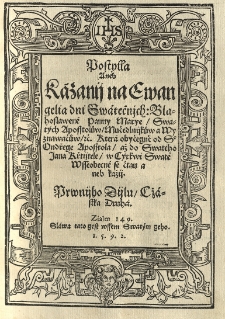 IHS
Postylla
Aneb
Kázanij na Ewan
gelia dni Swátečnjch: Bla-
hoslawené Panny Marye / Swa-
tých Apostolůw / Mučedlnjkůw a Wy-
znawačůw / zč. Která obyčegně od S.
Ondřege Apostola / až do Swatého
Jana Křtitele / w Cyrkwi Swaté
Wssobecné se čtau a
neb káži.
Prwnijho Dijlu / Cžá-
stka Druhá.
Žalm 149.
Sláwa tato gest wssem Swatým geho.
1. 5. 9. 2.